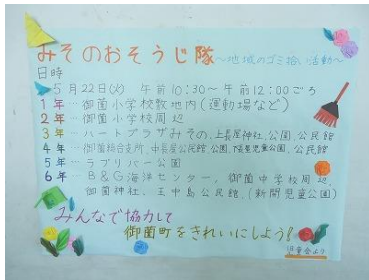 みそのおそうじ隊 ～地域のゴミ拾い活動～
日時
5月22日(火) 午前10:30～午前12:00ごろ
1年…御薗小学校敷地内(運動場など)
2年…御薗小学校周辺
3年…ハートプラザみその、上長屋神社、公園、公民館
4年…御薗総合支所、中長屋公民館、公園、下長屋児童公園、公民館
5年…ラブリバー公園
6年…B&G海洋センター、御薗中学校周辺
御薗神社、王中島公民館、(新開児童公園)
みんなで協力して
御薗町をきれいにしよう!
児童会より